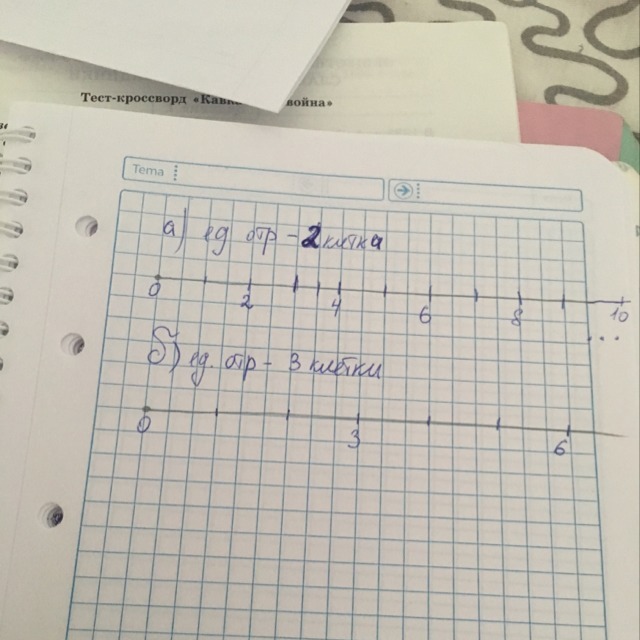 Тест-кроссворд «Кавка война»
Tema
а) ед отр - 2 клетка
0 2 4 6 8 10
...
б) ед. отр - 3 клетки
0 3 6